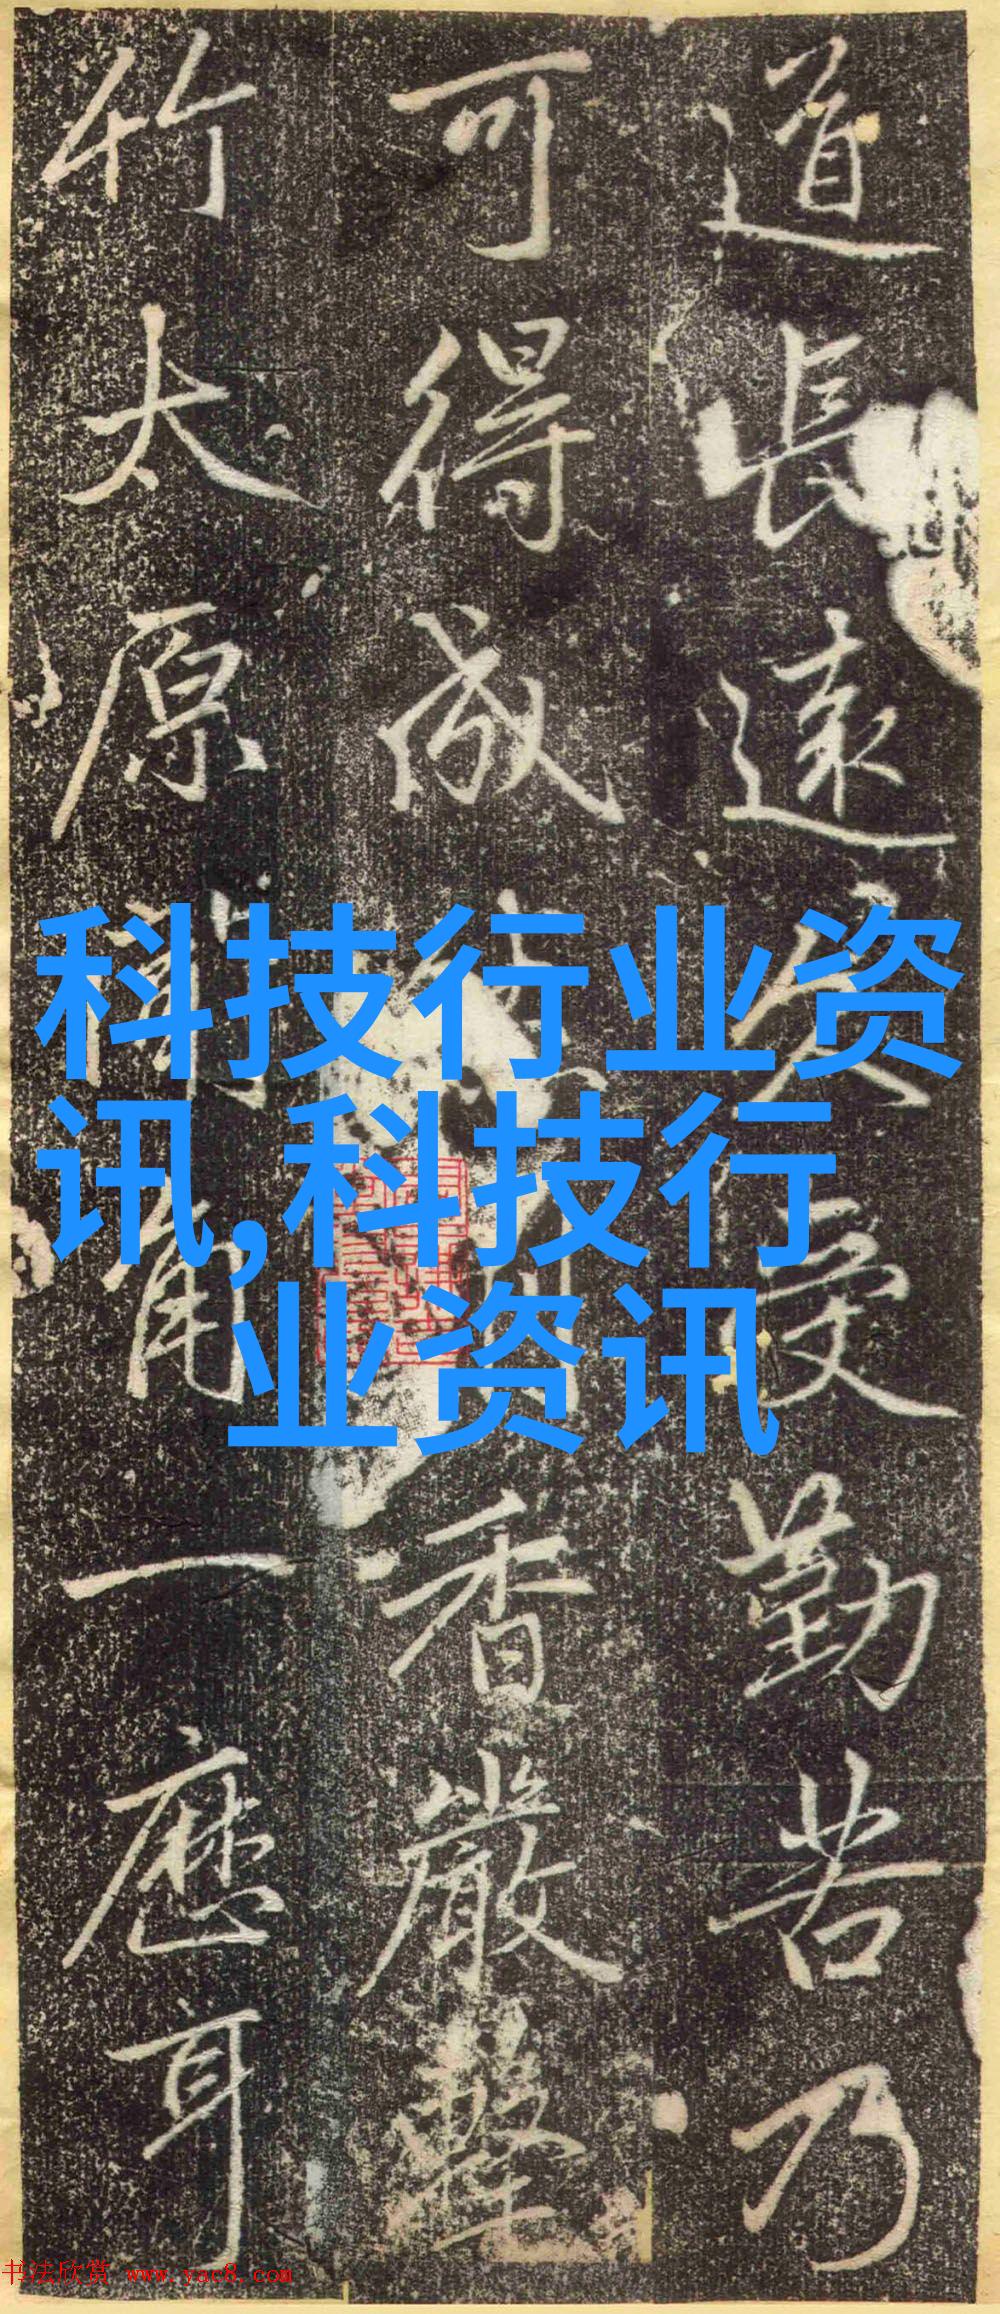 道長遠久受勤苦乃
可得成香嚴擊
竹太原角一應耳
科技行业资
讯,科技行
业资讯
书法欣赏 www.yac8.com